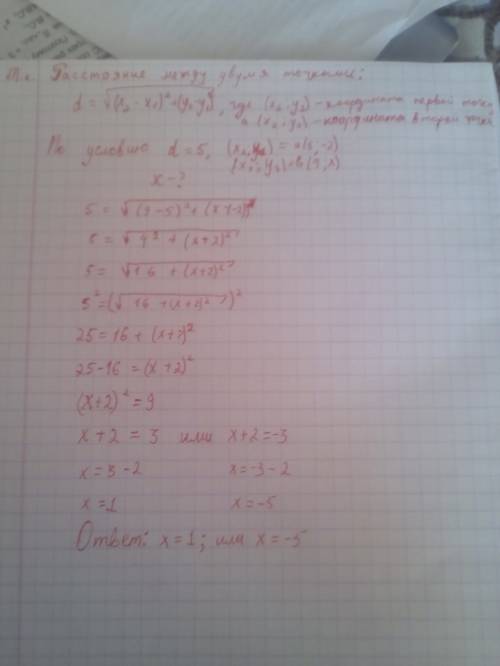 Т.к. Расстояние между двумя точками:
d = √(x₂ - x₁)² + (y₂ - y₁)², где (x₁; y₁) - координата первой точки
а (x₂; y₂) - координата второй точки
По условию d = 5, (x₁, y₁) = A(5, -2)
(x₂, y₂) = B(9, x)
x - ?
5 = √(9 - 5)² + (x + 2)²
5 = √4² + (x + 2)²
5 = √16 + (x + 2)²
5² = (√16 + (x + 2)²)²
25 = 16 + (x + 2)²
25 - 16 = (x + 2)²
(x + 2)² = 9
x + 2 = 3 или x + 2 = -3
x = 3 - 2 x = -3 - 2
x = 1 x = -5
Ответ: x = 1; или x = -5